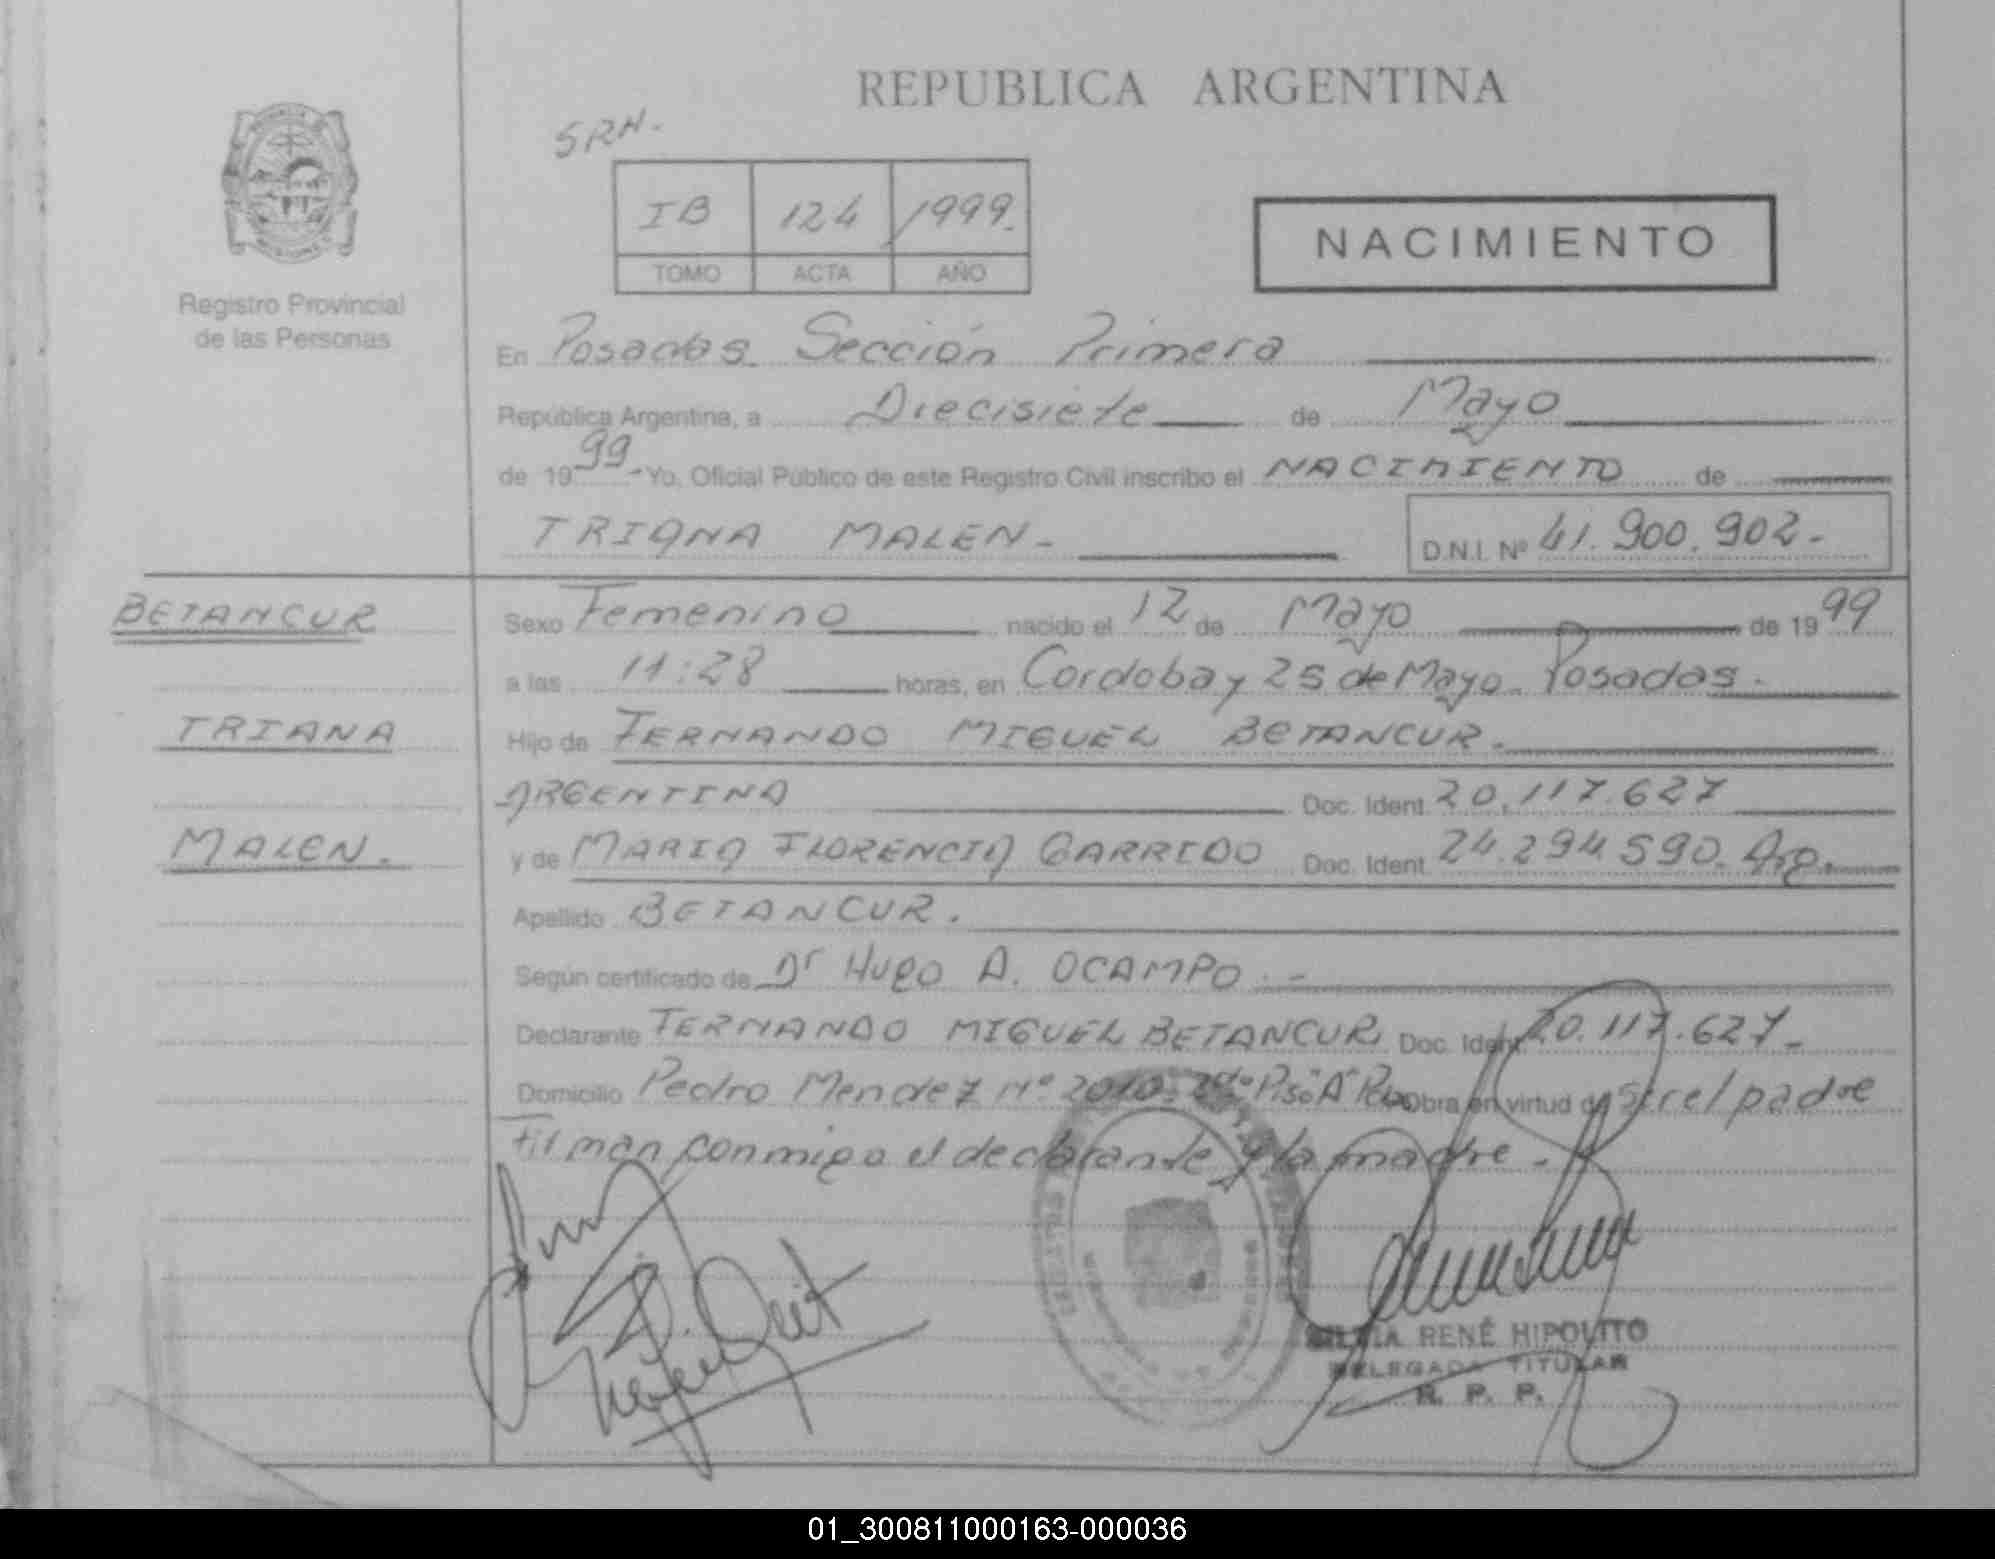 REPUBLICA ARGENTINA
SRN.
IB 124 1999.
TOMO ACTA AÑO
NACIMIENTO
Registro Provincial
de las Personas
En Posadas. Sección Primera
República Argentina, a Diecisiete de Mayo
de 1999.- Yo, Oficial Público de este Registro Civil inscribo el NACIMIENTO de
TRIANA MALEN.-
D.N.I. Nº 41.900.902.-
BETANCUR
TRIANA
MALEN.
Sexo Femenino nacido el 12 de Mayo de 1999
a las 11:28 horas, en Cordoba y 25 de Mayo. Posadas.
Hijo de FERNANDO MIGUEL BETANCUR.
ARGENTINA Doc. Ident. 20.117.627
y de MARIA FLORENCIA GARRIDO Doc. Ident. 24.294.590. Arg.
Apellido BETANCUR.
Según certificado de Dr HUGO A. OCAMPO.-
Declarante FERNANDO MIGUEL BETANCUR Doc. Ident. 20.117.627.-
Domicilio Pedro Mendez Nº 2010. Piso "A" Obra en virtud de Ser el padre
Firman conmigo el declarante y la madre.-
SILVIA RENÉ HIPOLITO
DELEGADA TITULAR
R. P. P.
01_300811000163-000036